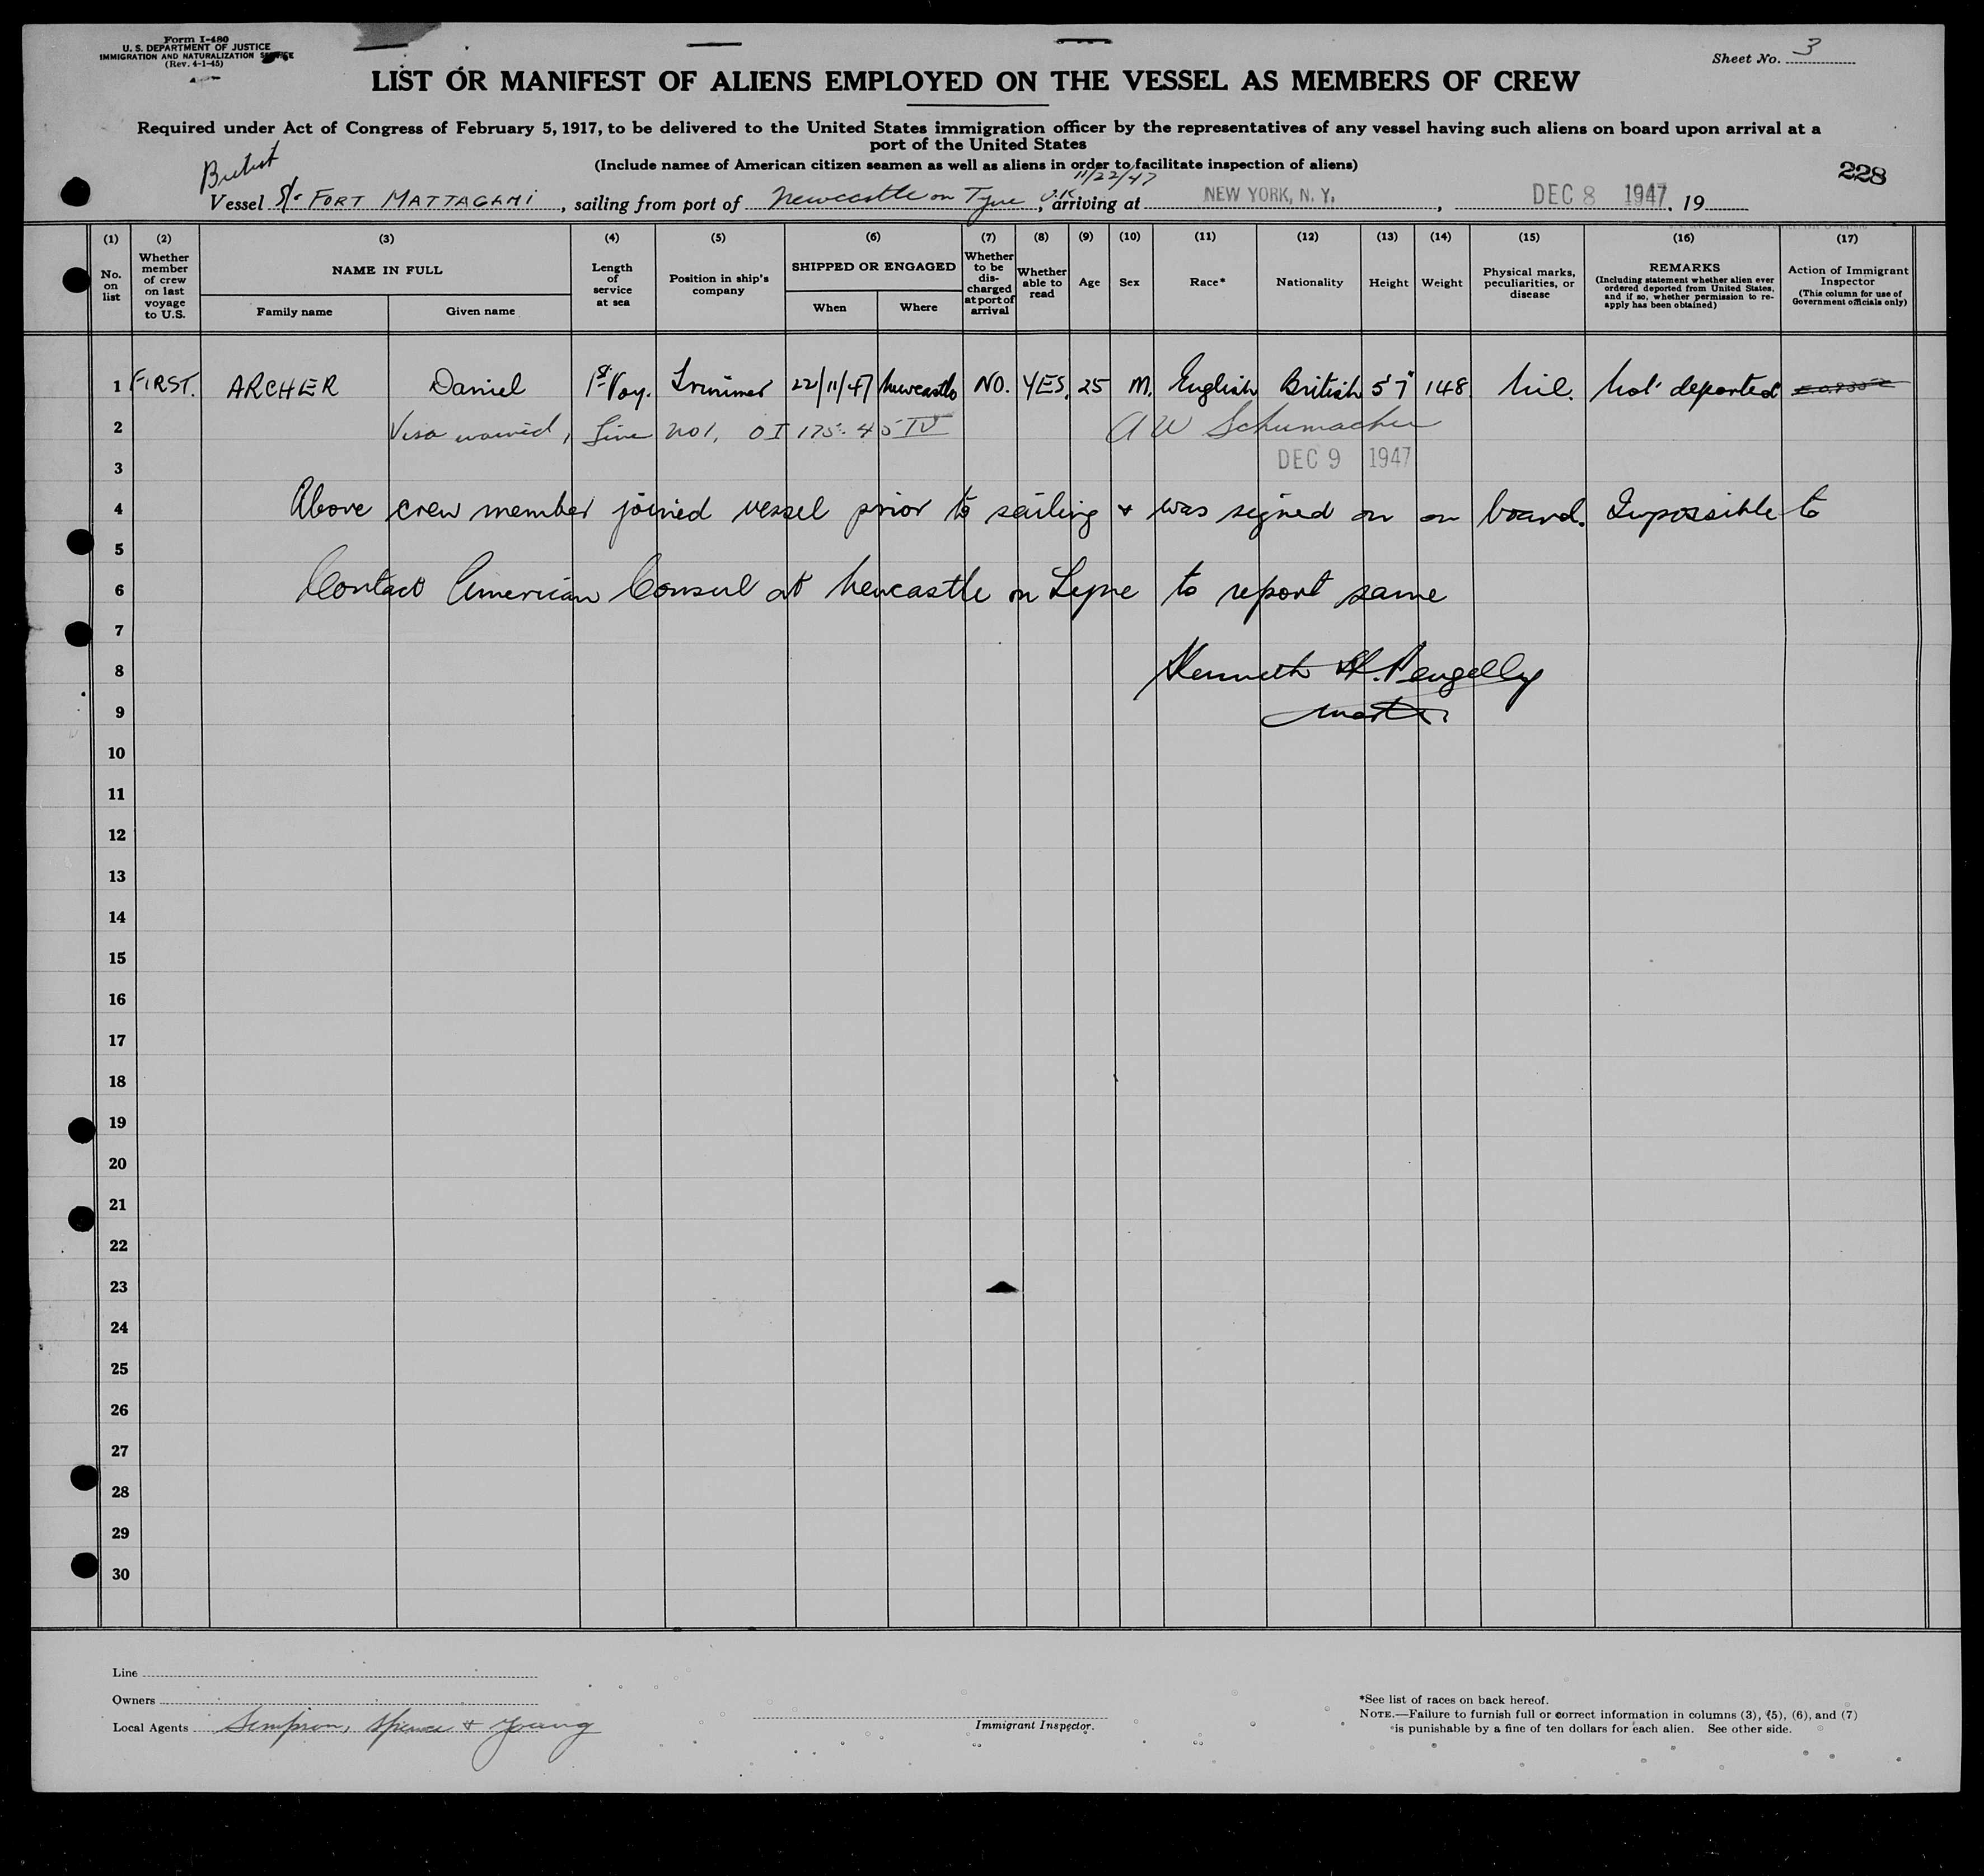 Form I-480
U. S. DEPARTMENT OF JUSTICE
IMMIGRATION AND NATURALIZATION SERVICE
(Rev. 4-1-45)
Sheet No. 3
LIST OR MANIFEST OF ALIENS EMPLOYED ON THE VESSEL AS MEMBERS OF CREW
Required under Act of Congress of February 5, 1917, to be delivered to the United States immigration officer by the representatives of any vessel having such aliens on board upon arrival at a
port of the United States
(Include names of American citizen seamen as well as aliens in order to facilitate inspection of aliens)
11/22/47
228
Vessel S/S FORT MATTAGAMI, sailing from port of Newcastle on Tyne, U.K., arriving at NEW YORK, N. Y., DEC 8 1947, 19
(1) (2) (3) (4) (5) (6) (7) (8) (9) (10) (11) (12) (13) (14) (15) (16) (17)
No. on list
Whether member of crew on last voyage to U.S.
NAME IN FULL
Family name
Given name
Length of service at sea
Position in ship's company
SHIPPED OR ENGAGED
When
Where
Whether to be discharged at port of arrival
Whether able to read
Age
Sex
Race*
Nationality
Height
Weight
Physical marks, peculiarities, or disease
REMARKS
(Including statement whether alien ever ordered deported from United States, and if so, whether permission to re-apply has been obtained)
Action of Immigrant Inspector
(This column for use of Government officials only)
1 FIRST. ARCHER Daniel 1st Voy. Trimmer 22/11/47 Newcastle NO. YES. 25 M. English British 5'7" 148 Nil. Not deported
2 Visa waived, Line No 1, OI 175.45 IV A W Schumacher
3 DEC 9 1947
4 Above crew member joined vessel prior to sailing & was signed on on board. Impossible to
5
6 Contact American Consul at Newcastle on Tyne to report same
7
8 Kenneth H. Pengelly
9 Master
10
11
12
13
14
15
16
17
18
19
20
21
22
23
24
25
26
27
28
29
30
Line
Owners
Local Agents Simpson, Spence & Young
Immigrant Inspector.
*See list of races on back hereof.
NOTE.—Failure to furnish full or correct information in columns (3), (5), (6), and (7)
is punishable by a fine of ten dollars for each alien. See other side.